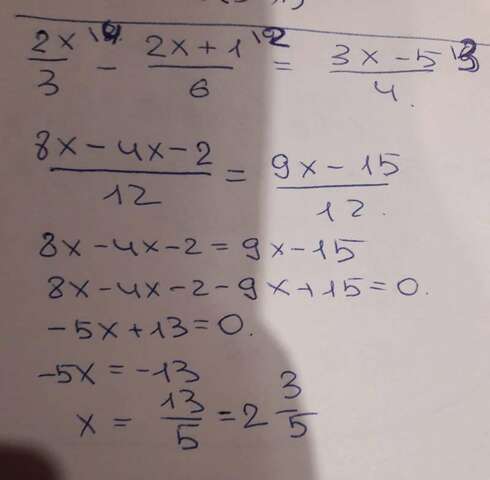 2x\4/3 - 2x+1\2/6 = 3x-5\3/4.
8x-4x-2/12 = 9x-15/12.
8x-4x-2=9x-15
8x-4x-2-9x+15=0.
-5x+13=0.
-5x=-13
x = 13/5 = 2 3/5